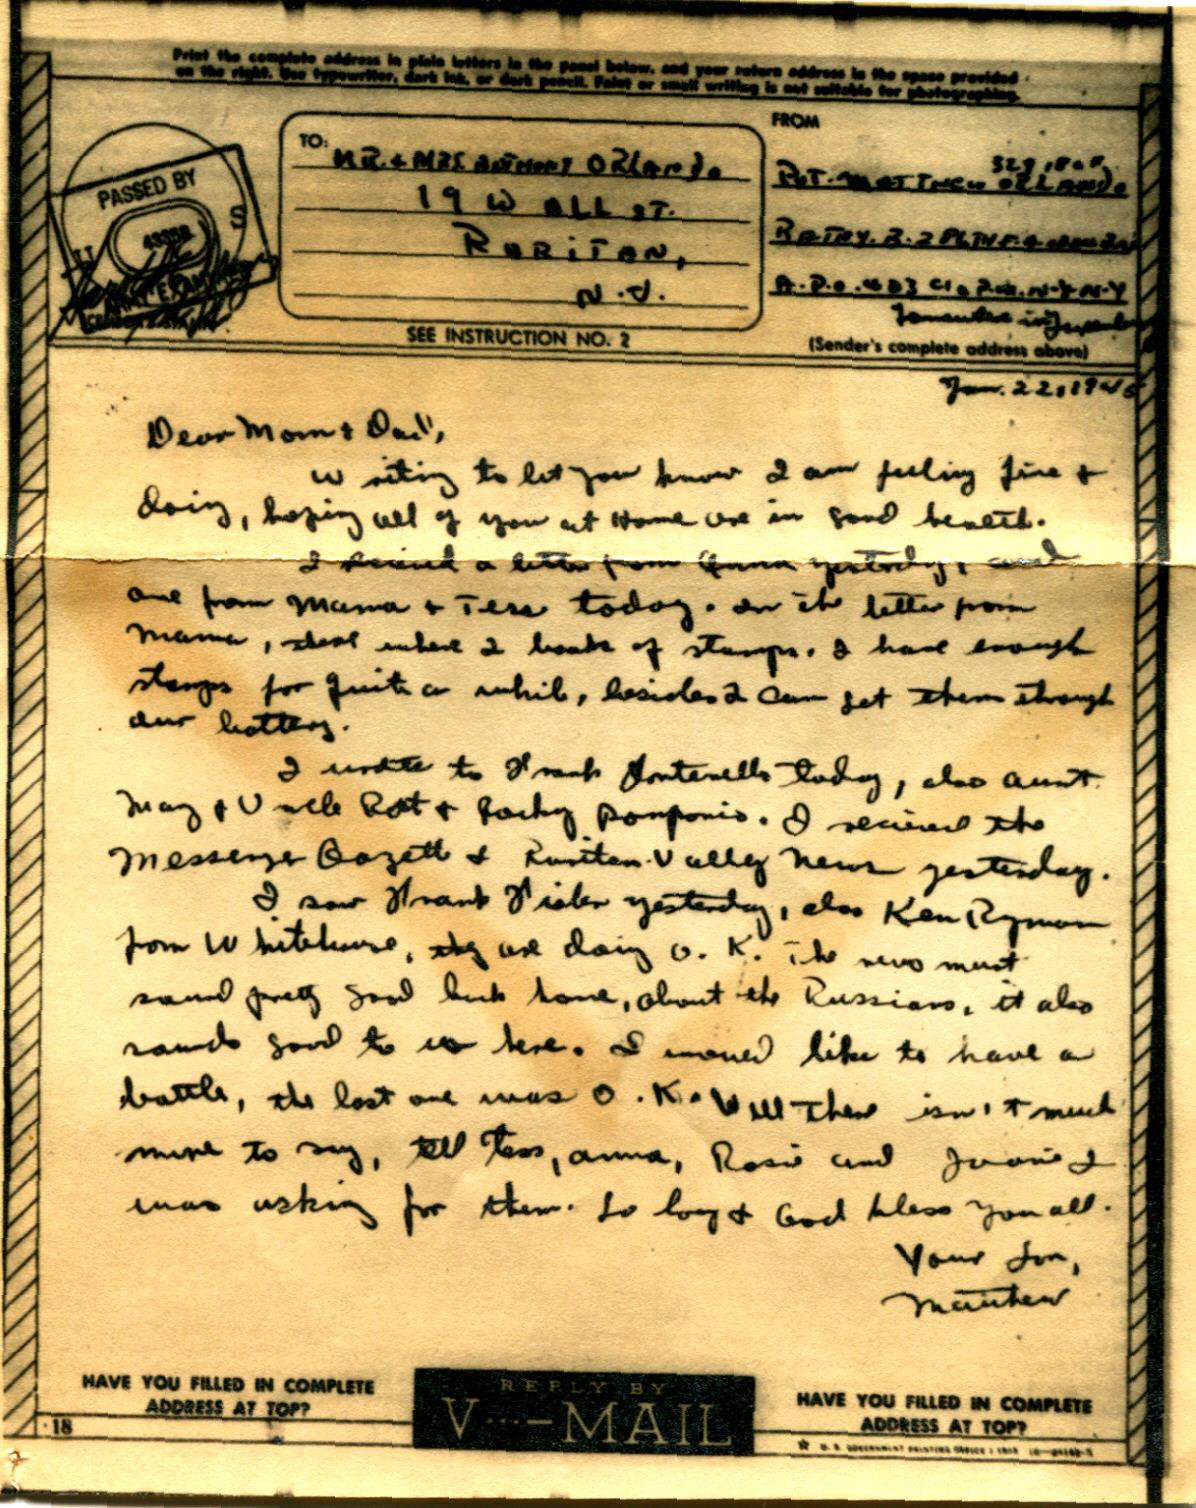 Print the complete address in plain letters in the panel below, and your return address in the space provided
on the right. Use typewriter, dark ink, or dark pencil. Faint or small writing is not suitable for photographing.
FROM
TO:
MR. & MRS. ANTHONY ORLANDO
19 WALL ST.
RARITAN,
N.J.
PASSED BY
U S
ARMY EXAMINER
PVT. MATTHEW ORLANDO
A.P.O. 403 c/o P.M. N.Y. N.Y
Somewhere in
(Sender's complete address above)
SEE INSTRUCTION NO. 2
Jan. 22, 1945
Dear Mom & Dad,
Writing to let you know I am feeling fine &
doing, hoping all of you at Home are in good health.
I recieved a letter from Anna yesterday, and
one from Mama & Tess today. In the letter from
Mama, there where 2 books of stamps. I have enough
stamps for quite a while, besides I can get them through
our battery.
I wrote to Frank today, also aunt
May & Uncle Pat & Rocky Pomponio. I recieved the
Messenger Gazette & Raritan Valley News yesterday.
I saw Frank yesterday, also Ken Ryman
from Whitehouse, they are doing O.K. The news must
sound pretty good back home, about the Russians, it also
sounds good to us here. I would like to have a
bottle, the last one was O.K. Well there isn't much
more to say, tell Tess, Anna, Rosie and I
was asking for them. So long & God bless you all.
Your Son,
Matthew
HAVE YOU FILLED IN COMPLETE
ADDRESS AT TOP?
REPLY BY
V···—MAIL
HAVE YOU FILLED IN COMPLETE
ADDRESS AT TOP?
18
U. S. GOVERNMENT PRINTING OFFICE